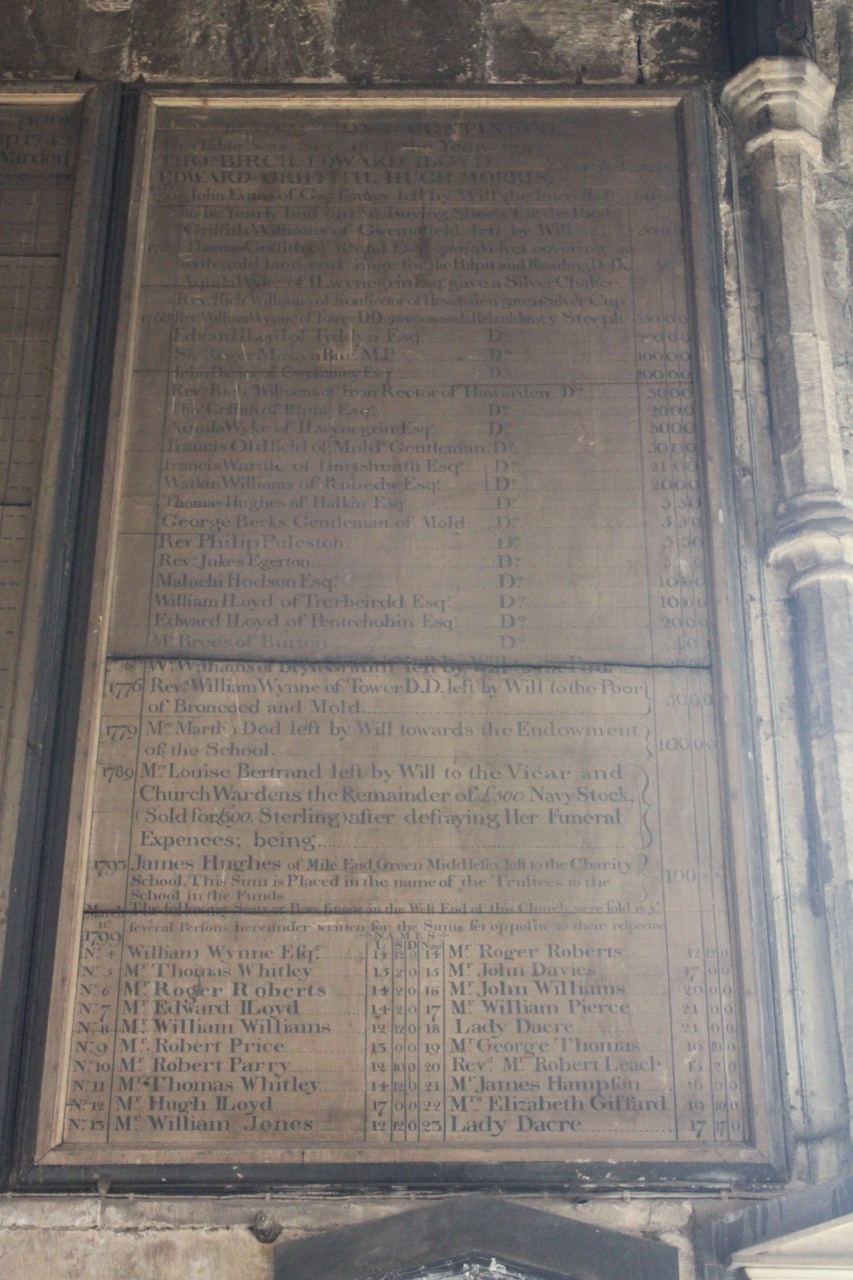 1742
Warden
BENEFACTIONS CONTINUED
This Table was Set up in the Year
THOs. BIRCH EDWARD LLOYD
EDWARD GRIFFITH, HUGH MORRIS
John Evans of Gwysaney left by Will the Interest of
to be Yearly laid out in buying Shoes for the Poor
Griffith Williams of Gwernaffield left by Will
Thomas Griffith of Rhual Esqr. gave a Velvet covering
with gold lace and fringe for the Pulpit and Reading Desk
Aquila Wyke of Llwynegrin Esqr. gave a Silver Chalice
Revd. Richd. Williams of Fron Rector of Hawarden gave a Silver Cup
1768 Revd. William Wynne of Tower D.D. towards Rebuilding ye Steeple
Edward Lloyd of Tyddyn Esqr. Do.
Sir Roger Mostyn Bart. M.P. Do. 100 00
of Gwysaney Esqr. Do. 100 00
Revd. Richd. Williams of Fron Rector of Hawarden Do. 50 00
Thos. Griffith of Rhual Esqr. Do. 20 00
Aquila Wyke of Llwynegrin Esqr. Do. 50 00
Francis Oldfield of Mold Gentleman Do. 50 00
Francis Wardle of Hartsheath Esqr. Do. 21 00
Watkin Williams of Penbedw Esqr. Do. 20 00
Thomas Hughes of Halkin Esqr. Do. 5 5 0
George Becks Gentleman of Mold Do. 5 5 0
Revd. Philip Puleston Do. 5 5 0
Revd. Jukes Egerton Do.
Malachi Hodson Esqr. Do.
William Lloyd of Trerbeirdd Esqr. Do. 10 10 0
Edward Lloyd of Pentrehobin Esqr. Do. 20 00
Mr. Brees of Burton Do.
W. Williams of Bryn Griffith left by Will to the Poor
1776 Revd. William Wynne of Tower D.D. left by Will to the Poor
of Broncoed and Mold 50 0 0
1779 Mrs. Martha Dod left by Will towards the Endowment
of the School 100 0 0
1789 Mrs. Louise Bertrand left by Will to the Vicar and
Church Wardens the Remainder of £500 Navy Stock,
(Sold for £600. Sterling) after defraying Her Funeral
Expences; being
1793 James Hughes of Mile End Green Middlesex left to the Charity
School. This Sum is Placed in the name of the Trustees to the 100
School in the Funds
March The following Seats or Pews situate in the West End of this Church were sold to ye.
11th. several Persons hereunder written for the Sums set opposite to their respective
1799 NAMES L S D Num
No. 4 William Wynne Esqr. 14 12 0 14 Mr. Roger Roberts 12 12 0
No. 5 Mr. Thomas Whitley 13 2 0 15 Mr. John Davies 17 0 0
No. 6 Mr. Roger Roberts 14 2 0 16 Mr. John Williams 20 0 0
No. 7 Mr. Edward Lloyd 14 2 0 17 Mr. William Pierce 21 0 0
No. 8 Mr. William Williams 12 12 0 18 Lady Dacre 21 0 0
No. 9 Mr. Robert Price 13 0 0 19 Mr. George Thomas 19 10 0
No. 10 Mr. Robert Parry 12 10 0 20 Revd. Mr. Robert Leach 15 2 0
No. 11 Mr. Thomas Whitley 14 12 0 21 Mr. James Hampson 16 0 0
No. 12 Mr. Hugh Lloyd 17 0 0 22 Mrs. Elizabeth Giffard 19 10 0
No. 13 Mr. William Jones 12 12 0 23 Lady Dacre 17 17 0